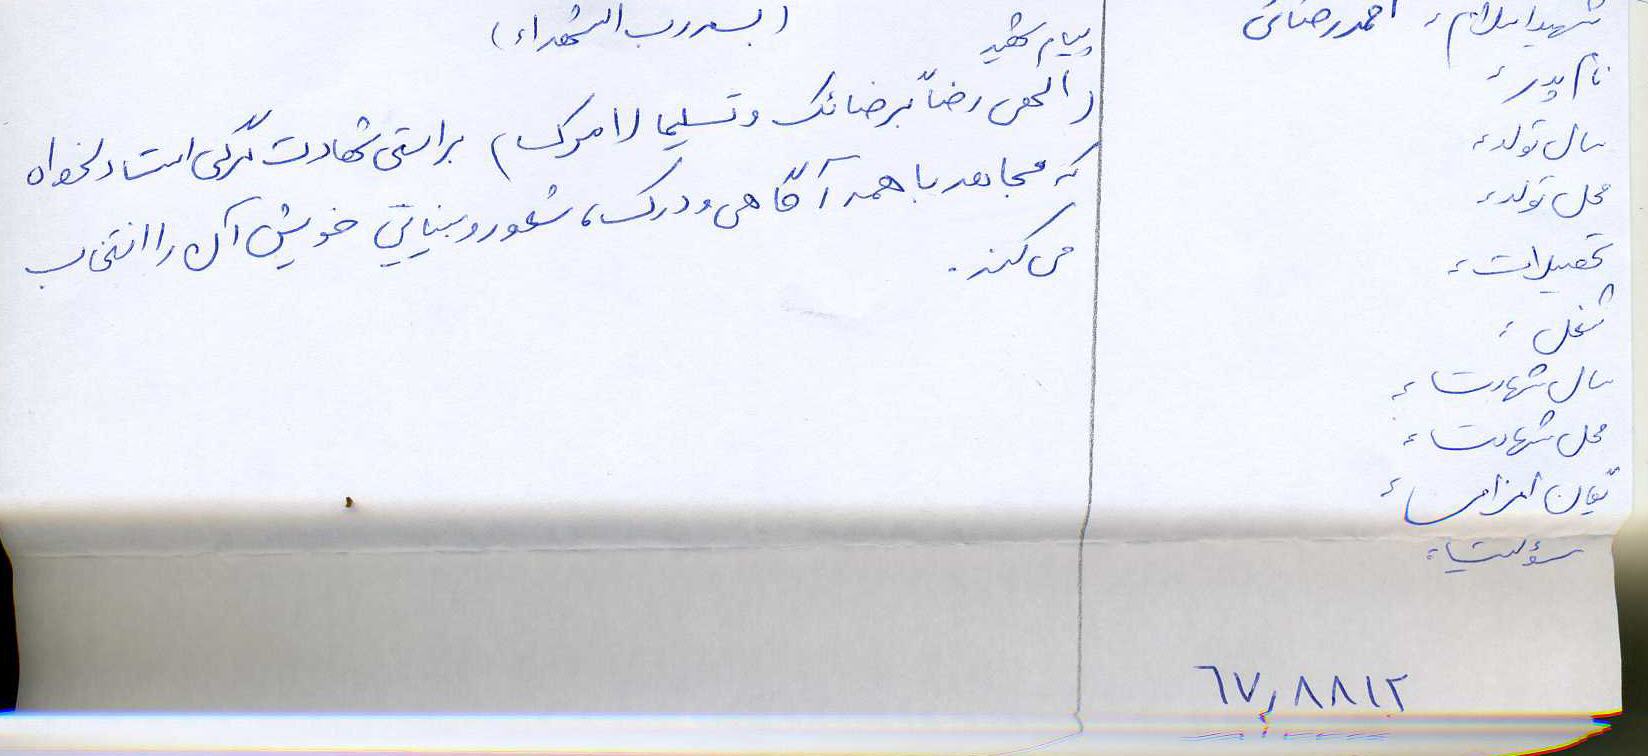 شهید اسلام: احمد رضائی
نام پدر:
سال تولد:
محل تولد:
تحصیلات:
شغل:
سال شهادت:
محل شهادت:
یگان اعزامی:
مسؤلیت:
٦٧٫٨٨١٢
پیام شهید (بسم رب الشهداء)
(الهی رضاً برضائک و تسلیما لامرک) براستی شهادت مرگی است دلخواه
که مجاهد با همه آگاهی و درک، شعور و بینایی خویش آن را انتخاب
می کند.